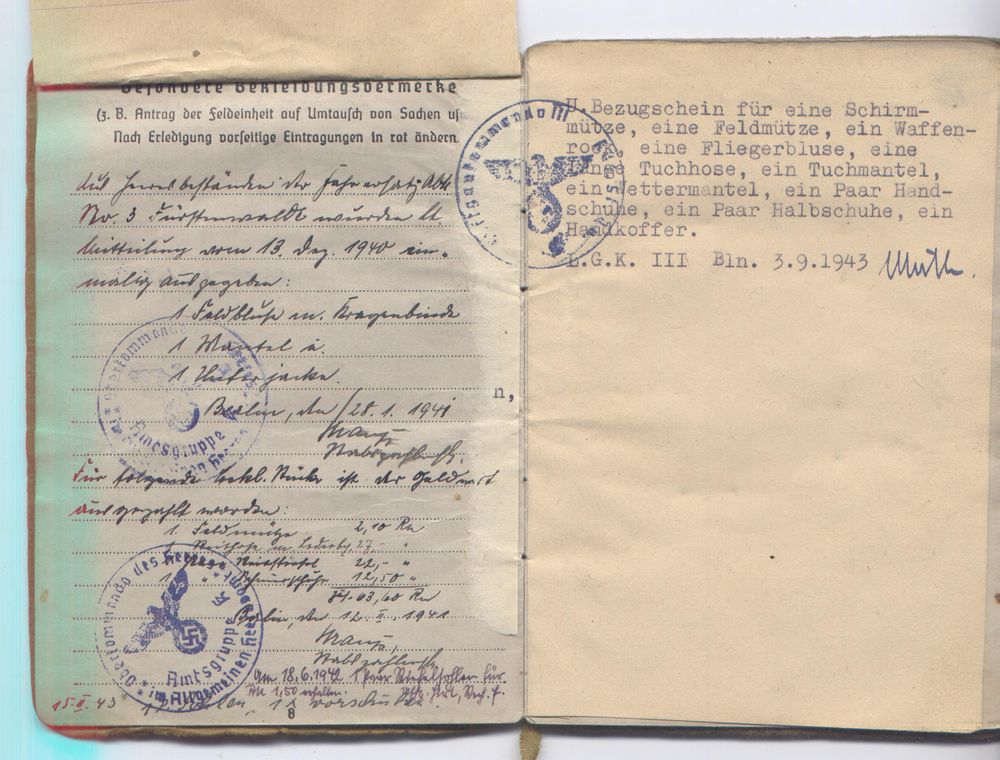 Besondere Bekleidungsvermerke
(z. B. Antrag der Feldeinheit auf Umtausch von Sachen us
Nach Erledigung vorseitige Eintragungen in rot ändern
Aus Heeresbeständen der Fahrersatz Abt.
No. 3 Fürstenwalde wurden lt.
Mitteilung vom 13. Dez. 1940 ein-
malig ausgegeben:
1 Feldbluse m. Kragenbinde
1 Mantel u.
1 Unterjacke.
Berlin, den 28. 1. 1941
Stabszahlmstr.
Für folgende Bekl. Stücke ist der Geldwert
ausgezahlt worden:
1 Feldmütze 2,10 Rm
1 Reithose m. Lederbes. 27,- "
1 Reitstiefel 22,- "
1 " Schnürschuhe 12,50 "
63,60 Rm
Berlin, den 12. II. 1941
Stabszahlmstr.
Am 18.6.1942 1 Paar Stiefelsohlen für
RM 1,50 erhalten.
15.II.43
8
Oberkommando des Heeres
Amtsgruppe
Oberkommando des Heeres
Amtsgruppe
im Allgemeinen Heeresamt
n,
II. Bezugschein für eine Schirm-
mütze, eine Feldmütze, ein Waffen-
rock, eine Fliegerbluse, eine
lange Tuchhose, ein Tuchmantel,
ein Wettermantel, ein Paar Hand-
schuhe, ein Paar Halbschuhe, ein
Handkoffer.
L.G.K. III Bln. 3.9.1943